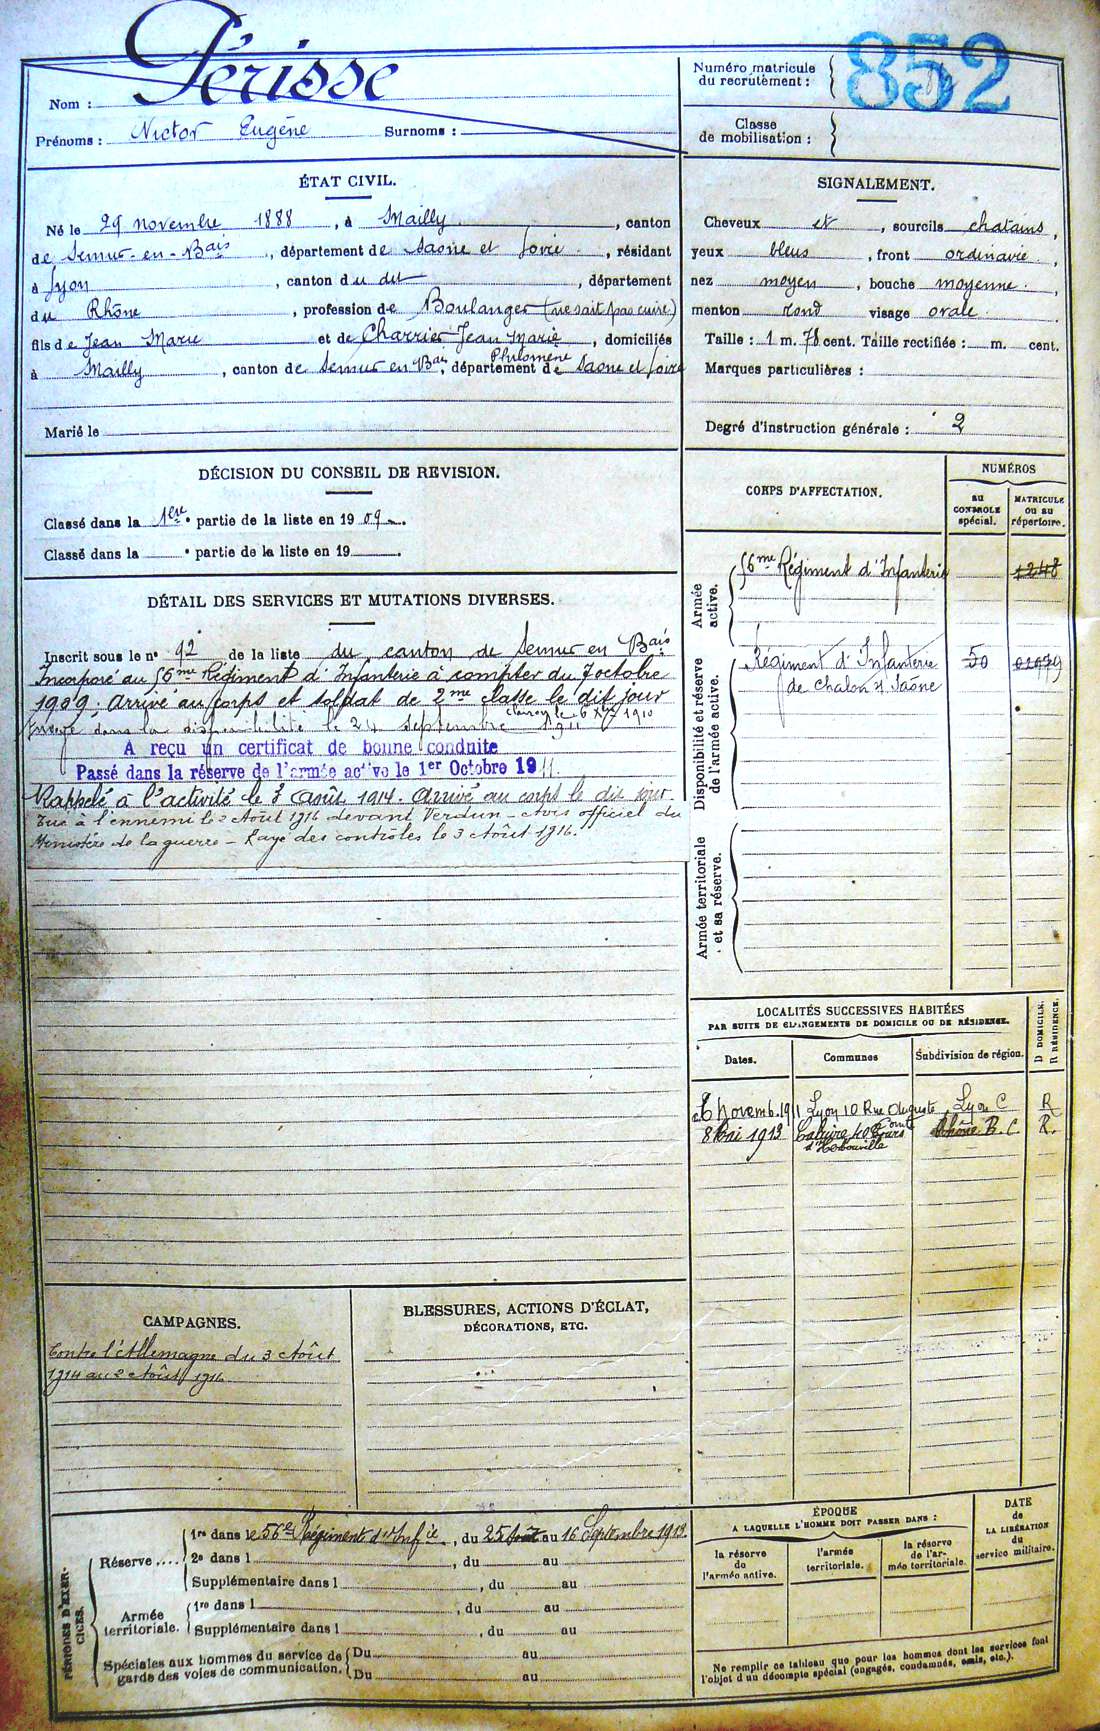 Nom : Périsse
Prénoms : Victor Eugène Surnoms :
Numéro matricule du recrutement : 852
Classe de mobilisation :
ÉTAT CIVIL.
Né le 29 novembre 1888, à Mailly, canton
de Semur-en-Bais, département de Saône et Loire, résidant
à Lyon, canton du du, département
du Rhône, profession de Boulanger (ne sait pas cuire)
fils de Jean Marie et de Charrier Jean Marie Philomène, domiciliés
à Mailly, canton de Semur en Bais, département de Saône et Loire
Marié le
SIGNALEMENT.
Cheveux et, sourcils chatains,
yeux bleus, front ordinaire,
nez moyen, bouche moyenne,
menton rond visage ovale
Taille : 1 m. 78 cent. Taille rectifiée : m. cent.
Marques particulières :
Degré d'instruction générale : 2
DÉCISION DU CONSEIL DE REVISION.
Classé dans la 1ere partie de la liste en 1909.
Classé dans la • partie de la liste en 19 .
DÉTAIL DES SERVICES ET MUTATIONS DIVERSES.
Inscrit sous le n° 92 de la liste du canton de Semur en Bais
Incorporé au 56me Régiment d'Infanterie à compter du 7 octobre
1909, arrivé au corps et soldat de 2me classe le dit jour
le 6 Xbre 1910
dans la disponibilité le 24 septembre 1911
A reçu un certificat de bonne conduite
Passé dans la réserve de l'armée active le 1er Octobre 1911.
Rappelé à l'activité le 3 Août 1914. Arrivé au corps le dit jour.
Tué à l'ennemi le 2 Août 1916 devant Verdun - Avis officiel du
Ministère de la guerre - Rayé des contrôles le 3 Août 1916.
CORPS D'AFFECTATION.
NUMÉROS
au CONTROLE spécial.
MATRICULE ou au répertoire.
Armée active.
56me Régiment d'Infanterie 1248
Disponibilité et réserve de l'armée active.
Régiment d'Infanterie
de Chalon s/ Saône
Armée territoriale et sa réserve.
LOCALITÉS SUCCESSIVES HABITÉES
PAR SUITE DE CHANGEMENTS DE DOMICILE OU DE RÉSIDENCE.
D DOMICILE. R RÉSIDENCE.
Dates. Communes Subdivision de région.
6 Novemb. 1911 Lyon 10 Rue Auguste Comte Lyon C R
8 Mai 1913 Caluire 40 Cours d'Herbouville Rhône R. C. R.
CAMPAGNES.
Contre l'Allemagne du 3 Août
1914 au 2 Août 1916
BLESSURES, ACTIONS D'ÉCLAT,
DÉCORATIONS, ETC.
PÉRIODES D'EXERCICES.
Réserve ....
1re dans le 56e Régiment d'Infie, du 25 Août au 16 Septembre 1913.
2e dans l , du au
Supplémentaire dans l , du au
Armée territoriale.
1re dans l , du au
Supplémentaire dans l , du au
Spéciales aux hommes du service de garde des voies de communication.
Du au
Du au
ÉPOQUE
A LAQUELLE L'HOMME DOIT PASSER DANS :
la réserve de l'armée active.
l'armée territoriale.
la réserve de l'armée territoriale.
DATE de LA LIBÉRATION du service militaire.
Ne remplir ce tableau que pour les hommes dont les services font
l'objet d'un décompte spécial (engagés, condamnés, omis, etc.).